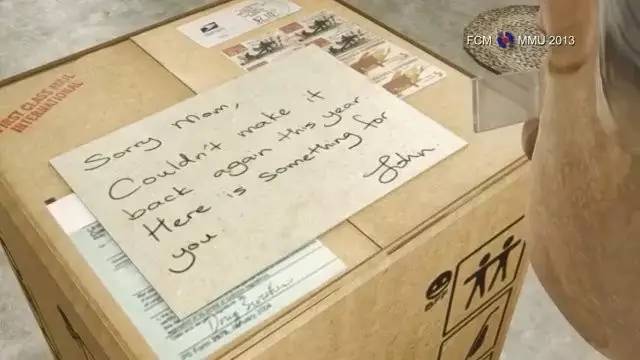 FCM MMU 2013
FIRST CLASS MAIL
INTERNATIONAL
Sorry Mom,
Couldn't make it
back again this year
Here is something for
you
John